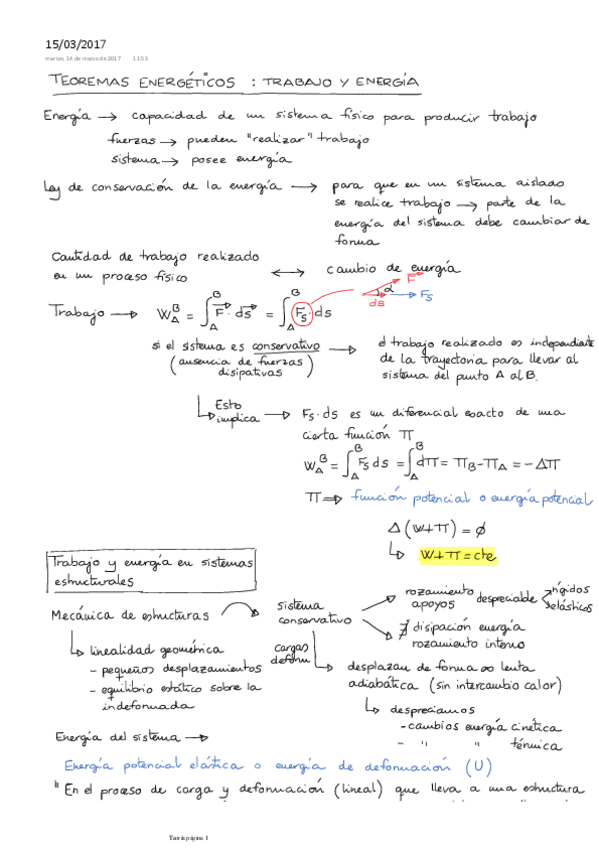 15/03/2017
martes, 14 de marzo de 2017 11:52
TEOREMAS ENERGÉTICOS : TRABAJO Y ENERGÍA
Energía → capacidad de un sistema físico para producir trabajo
fuerzas → pueden "realizar" trabajo
sistema → posee energía
Ley de conservación de la energía → para que en un sistema aislado
se realice trabajo → parte de la
energía del sistema debe cambiar de
forma
Cantidad de trabajo realizado
en un proceso físico ↔ cambio de energía
F α ds Fs
Trabajo → W_A^B = ∫_A^B F · ds = ∫_A^B Fs · ds
si el sistema es conservativo → el trabajo realizado es independiente
(ausencia de fuerzas de la trayectoria para llevar al
disipativas) sistema del punto A al B.
Esto
implica → Fs · ds es un diferencial exacto de una
cierta función Π
W_A^B = ∫_A^B Fs ds = ∫_A^B dΠ = Π_B - Π_A = - ΔΠ
Π ⇒ función potencial o energía potencial
Δ(W+Π) = ∅
↳ W+Π = cte
Trabajo y energía en sistemas
estructurales
Mecánica de estructuras → sistema conservativo
rozamiento apoyos despreciable rígidos elásticos
∄ disipación energía
rozamiento interno
↳ linealidad geométrica
- pequeños desplazamientos
- equilibrio estático sobre la
indeformada
cargas
deform ↳ desplazan de forma ∞ lenta
adiabática (sin intercambio calor)
↳ despreciamos
- cambios energía cinética
- " " térmica
Energía del sistema →
Energía potencial elástica o energía de deformación (U)
" En el proceso de carga y deformación (lineal) que lleva a una estructura
Teoría página 1